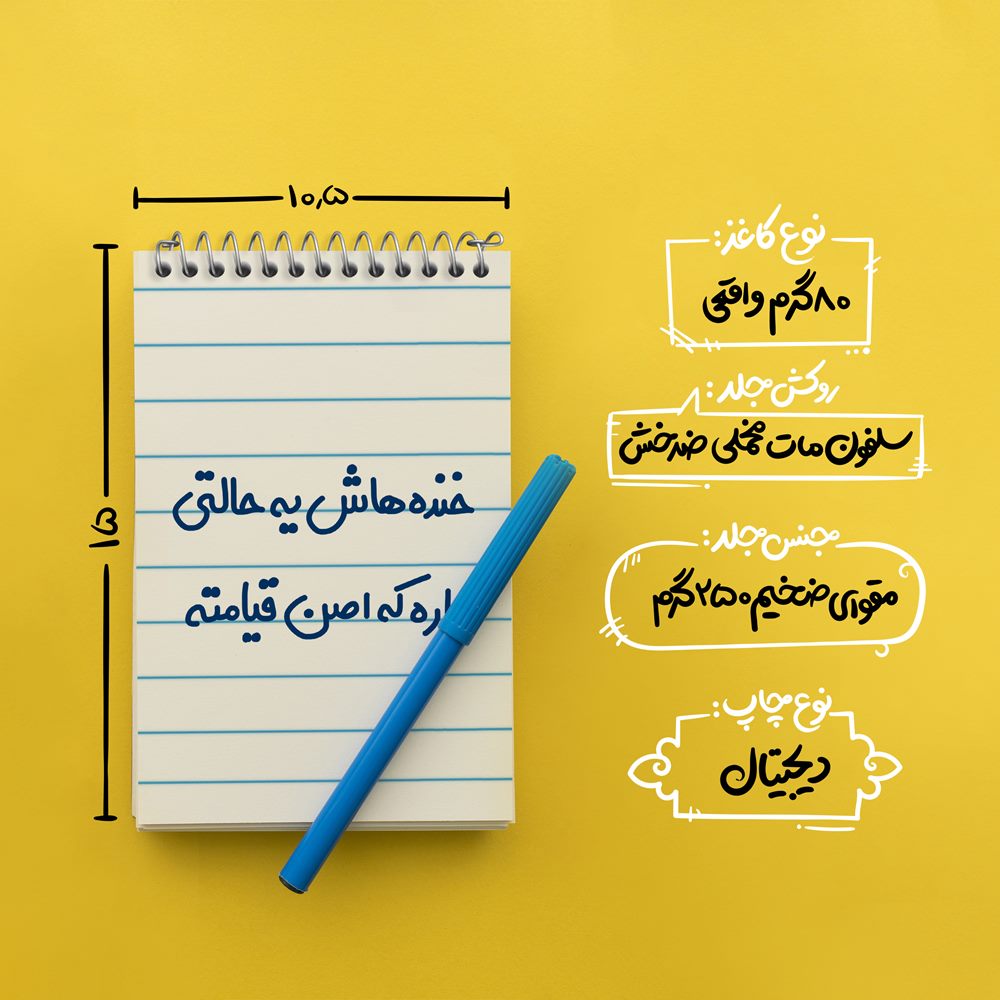 ۱۰٫۵
۱۵
خنده‌هاش یه حالتی
اره که اصن قیامته
نوع کاغذ:
۸۰گرم واقعی
روکش جلد:
سلفون مات مخملی ضدخش
جنس جلد:
مقوای ضخیم ۲۵۰گرم
نوع چاپ:
دیجیتال